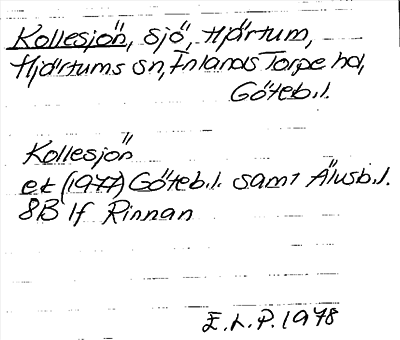 Kollesjön, sjö, Hjärtum,
Hjärtums sn, Inlands Torpe hd,
Göteb.l.
Kollesjön
ek (1977) Göteb.l. samt Älvsb.l.
8B 1f Rinnan
E.L.P. 1978